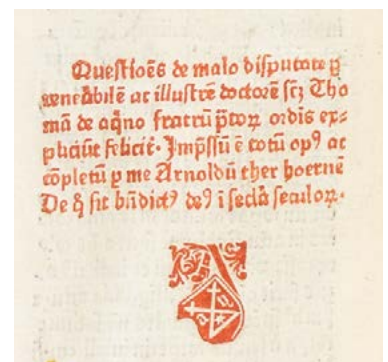 Questiões de malo disputate ꝑ
venẽabilẽ ac illustrẽ doctorẽ scꝫ Tho
mã de aq̃no fratrũ p̃toꝝ ordĩs ex⸗
pliciũt felicit̃. Imp̃ssũ ẽ totũ opꝰ ac
cõpletũ ꝑ me Arnoldũ ther hoernẽ
De q̃ sit bñdictꝰ deꝰ ĩ secl̃a seculoꝝ.